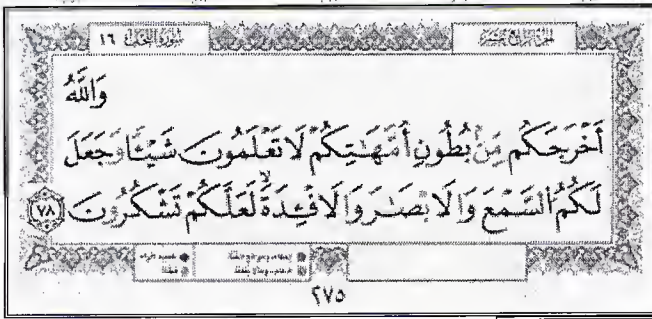 سورة النحل ١٦
الجزء الرابع عشر
وَاللَّهُ
أَخْرَجَكُم مِّنۢ بُطُونِ أُمَّهَٰتِكُمْ لَا تَعْلَمُونَ شَيْـًٔا وَجَعَلَ
لَكُمُ ٱلسَّمْعَ وَٱلْأَبْصَٰرَ وَٱلْأَفْـِٔدَةَ ۙ لَعَلَّكُمْ تَشْكُرُونَ ٧٨
٢٧٥